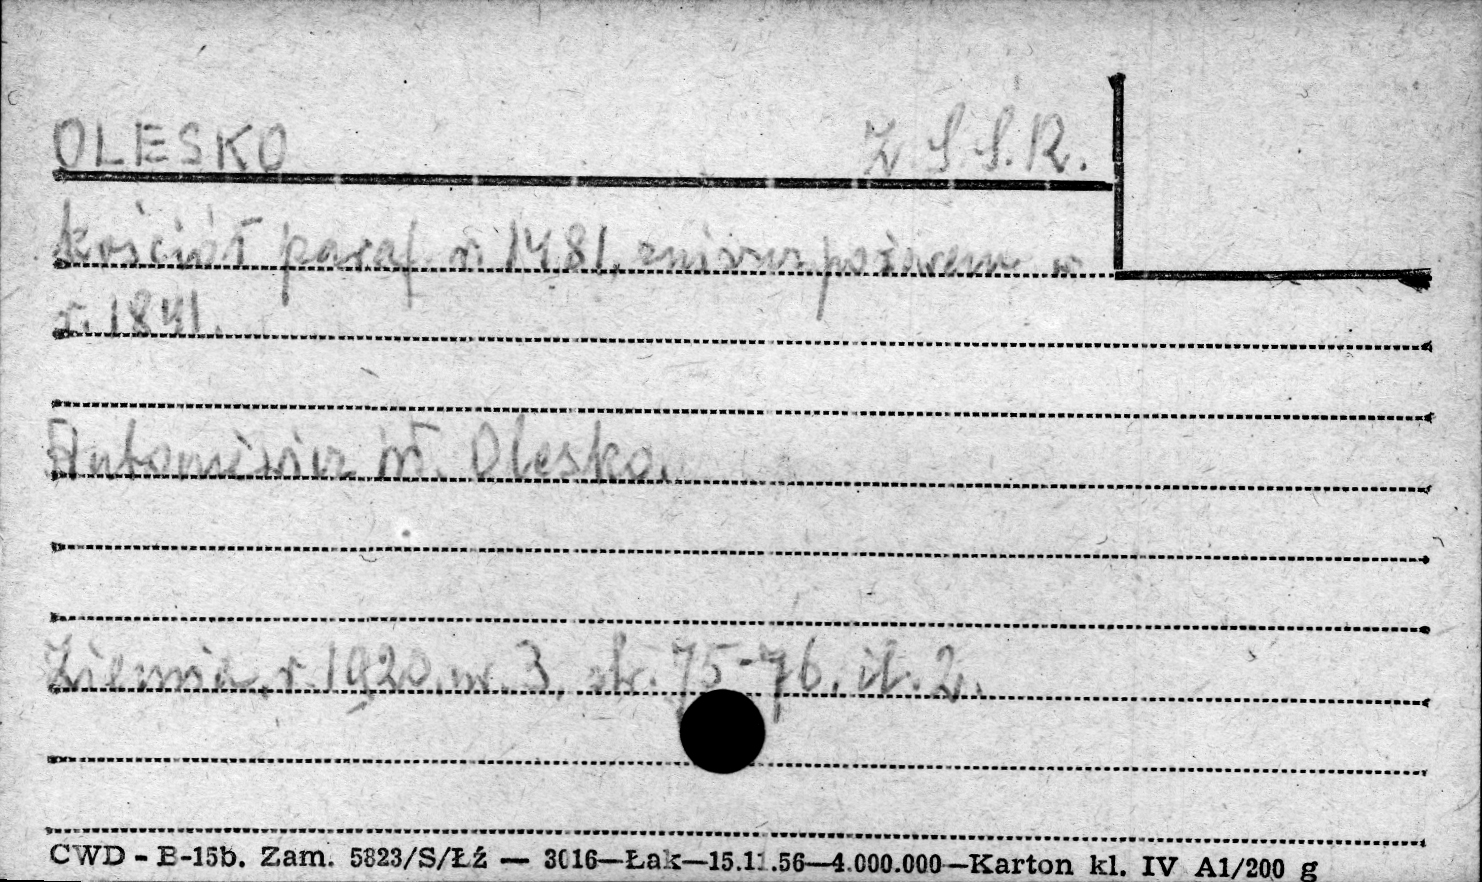 OLESKO Z.S.S.R.
kościół paraf. r. 1481, zniszcz. pożarem w
r. 1841.
Antoniewicz Wł. Olesko.
Ziemia, r. 1920, nr. 3, str. 75-76, il. 2.
CWD - B-15b. Zam. 5823/S/Łź — 3016—Łak—15.11.56—4.000.000—Karton kl. IV A1/200 g